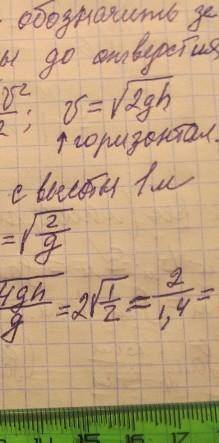 обозначить
до отверстия
v²/2; v = √2gh
↑горизонтал.
с высоты 1м
= √2/g
4gh/g = 2√1/2 = 2/1,4 =
14 15 16 17